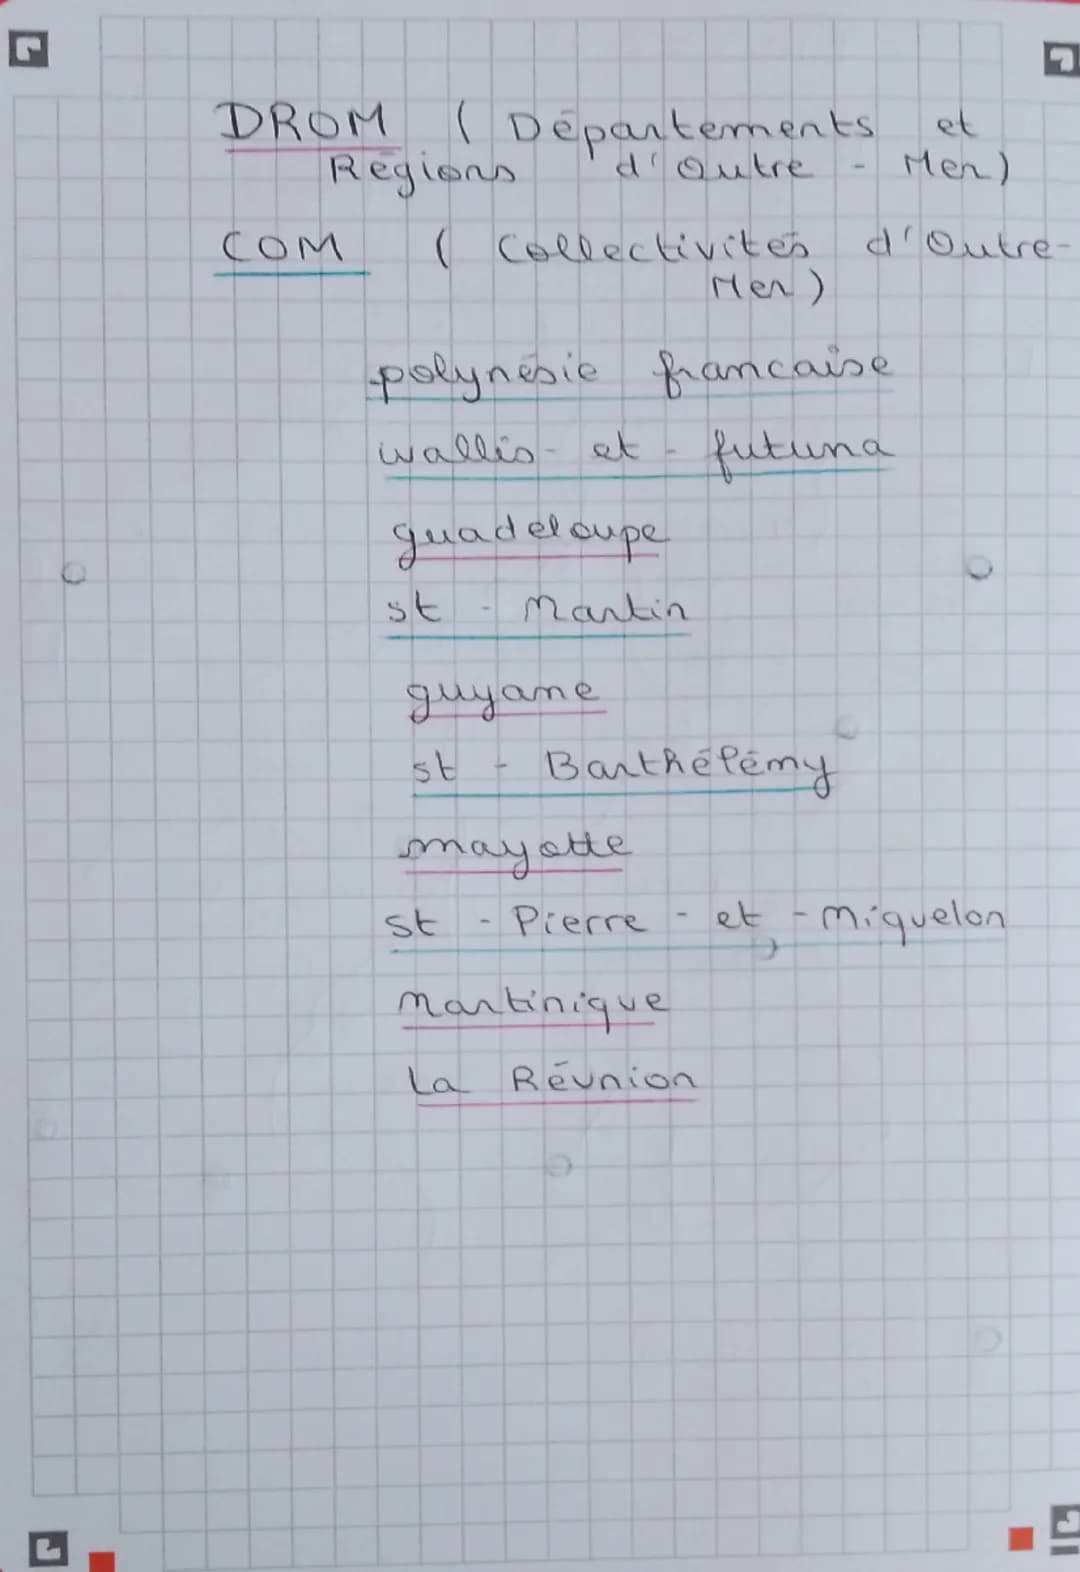 DROM ( Départements et
Régions d'Outre - Mer )
COM ( Collectivités d'Outre-
Mer )
polynésie francaise
wallis - et - futuna
guadeloupe
st - Martin
guyane
st - Barthélémy
mayotte
st - Pierre - et - Miquelon
Martinique
La Réunion